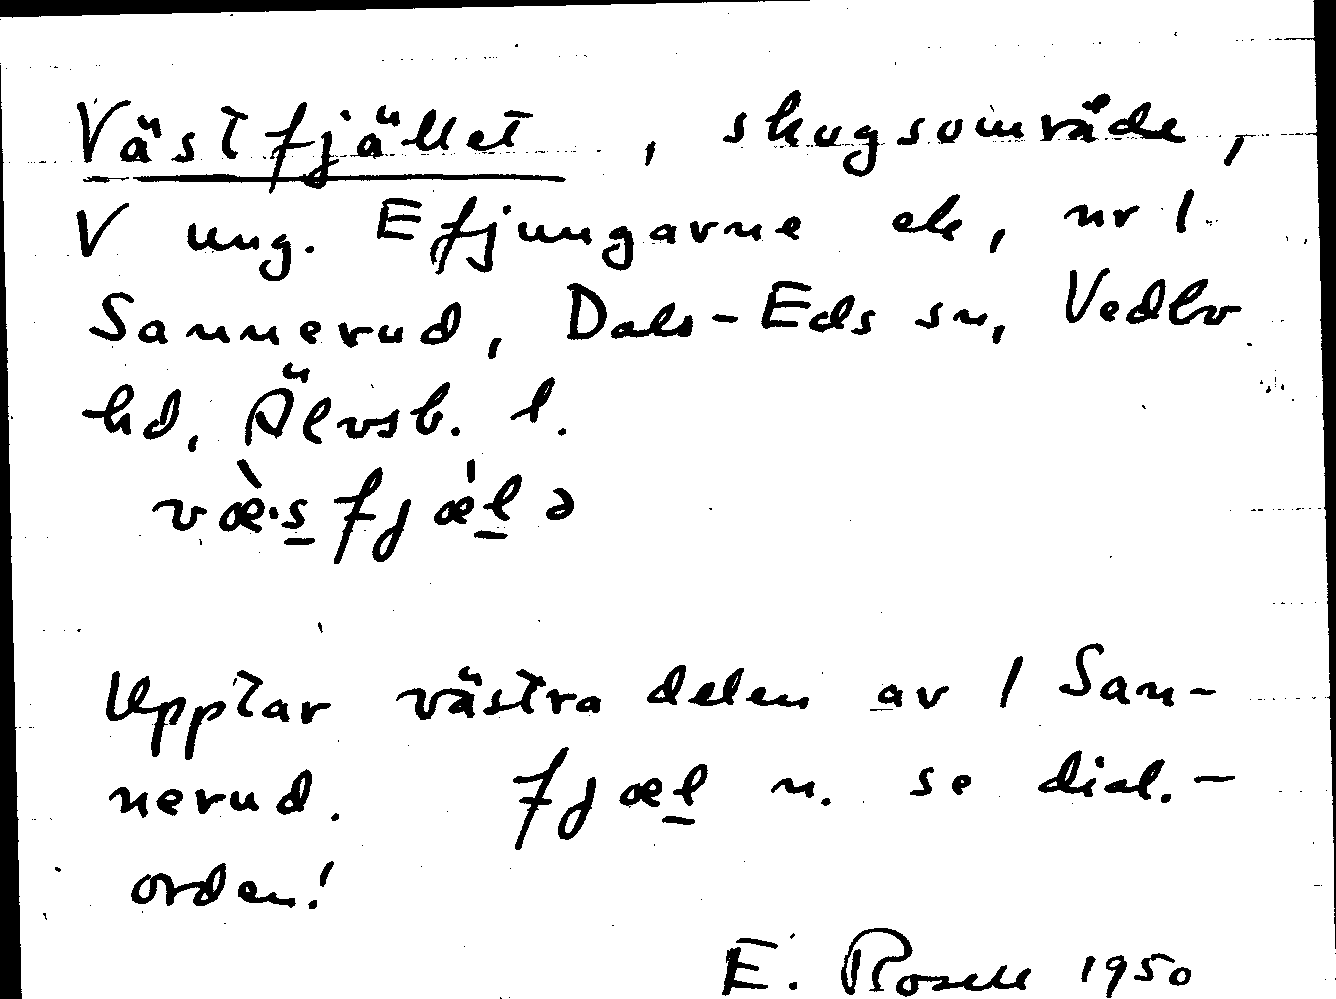 Västfjället, skogsområde,
V ung. Efjungarne ek, nr 1
Sannerud, Dals-Eds sn, Vedbo
hd, Älvsb. l.
væ̀·s̲fjæ̍l̲ə
Upptar västra delen av 1 San-
nerud. fjæl̲ n. se dial.-
orden!
E. Rosell 1950